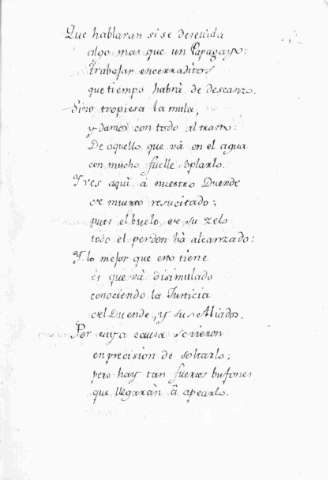 Que hablaran si se descuida
algo mas que un Papagayo:
trabajar encerraditos
que tiempo habrà de descanzo.
Si no tropiesa la mula,
y damos con todo al trasto:
De aquello que và en el agua
con mucho fuelle soplarlo.
Y ves aquì à nuestro Duende
de muerto resucitado;
pues el buelo, de su zelo
todo el perdon hà alcanzado:
Y lo mejor que esto tiene
es que và disimulado
conociendo la Justicia
del Duende, y sus Aliados.
Por cuya causa se vieron
en precision de soltarlo;
pero hay tan fieros bufones
que llegaràn â apearlo.